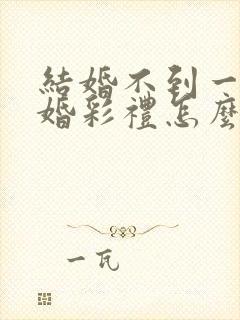 結婚不到一
婚彩禮怎麼
一瓦